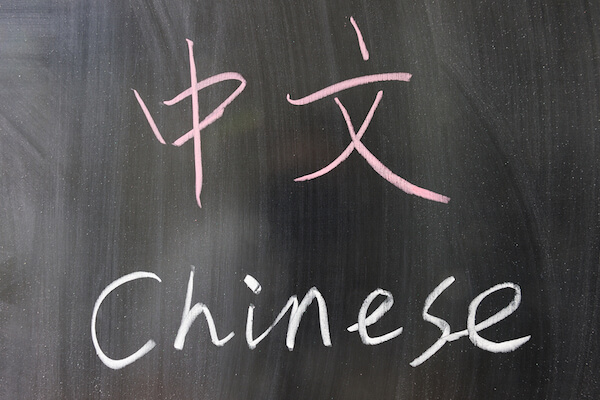 中文
Chinese